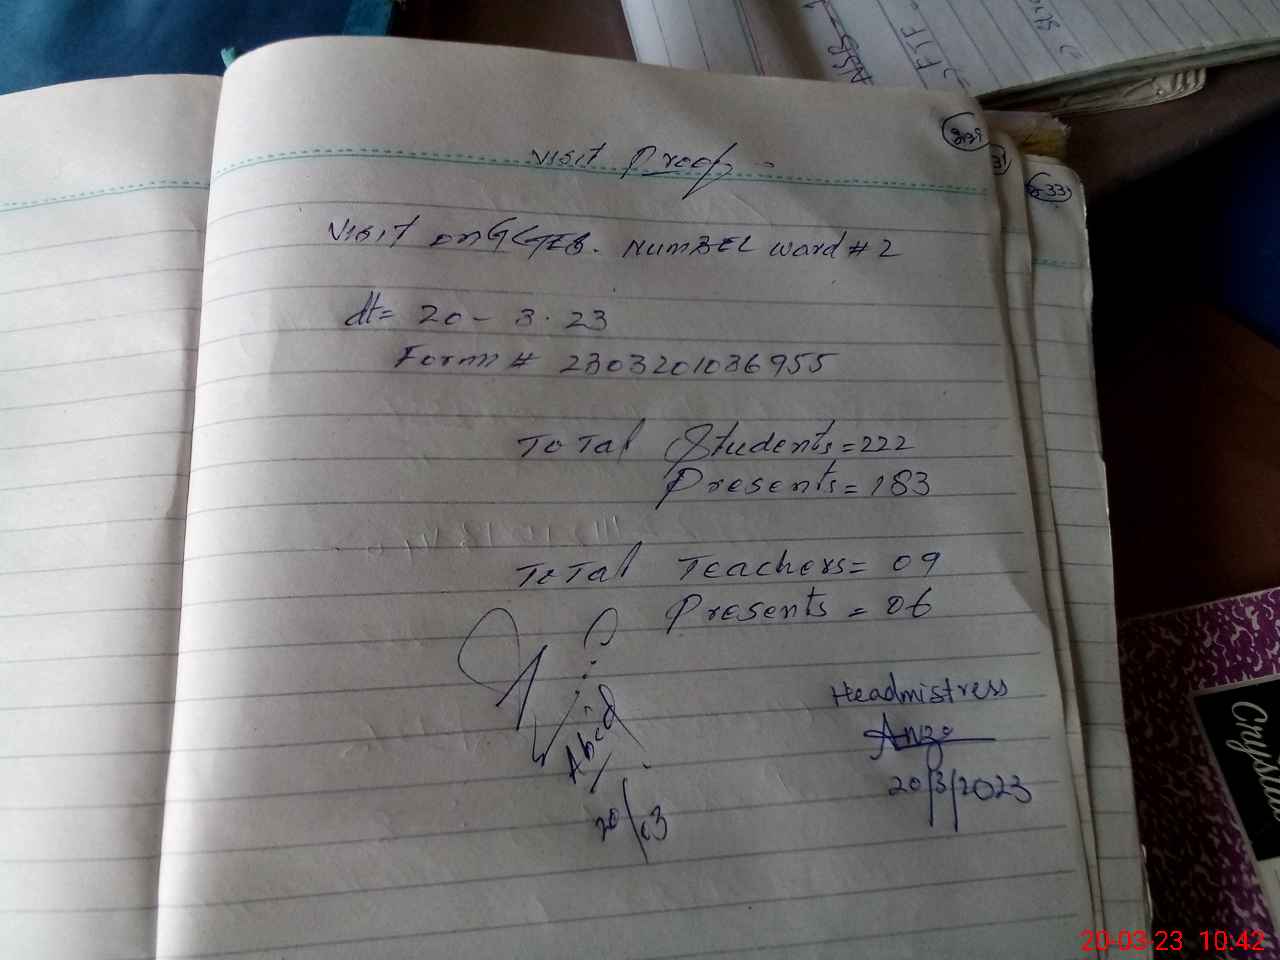 339
31
33
Visit Proof
Visit on GGTEB. NUMBEL ward # 2
dt= 20 - 3. 23
Form # 2303201036955
ToTal Students=222
Presents=183
ToTal Teachers= 09
Presents = 06
Headmistress
20/3/2023
Abid
20/03
FTF
Crystal
20-03-23 10:42